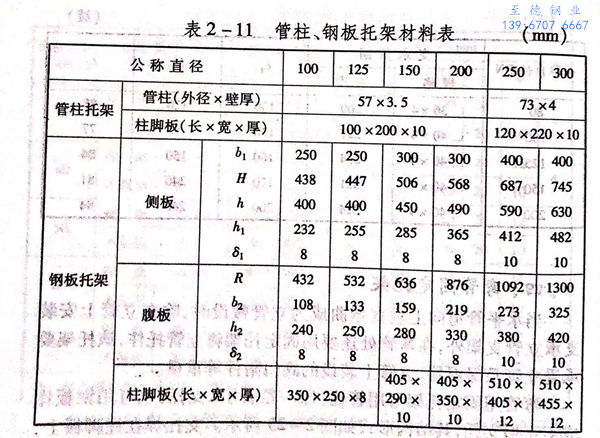 至德钢业
139 6707 6667
表2-11 管柱、钢板托架材料表 (mm)
公称直径 100 125 150 200 250 300
管柱托架 管柱(外径×壁厚) 57×3.5 73×4
柱脚板(长×宽×厚) 100×200×10 120×220×10
钢板托架 侧板 b₁ 250 250 300 300 400 400
H 438 447 506 568 687 745
h 400 400 450 490 590 630
h₁ 232 255 285 365 412 482
δ₁ 8 8 8 8 10 10
腹板 R 432 532 636 876 1092 1300
b₂ 108 133 159 219 273 325
h₂ 240 250 280 330 380 420
δ₂ 8 8 8 8 10 10
柱脚板(长×宽×厚) 350×250×8 405× 405× 510× 510×
290× 350× 405× 455×
10 10 12 12